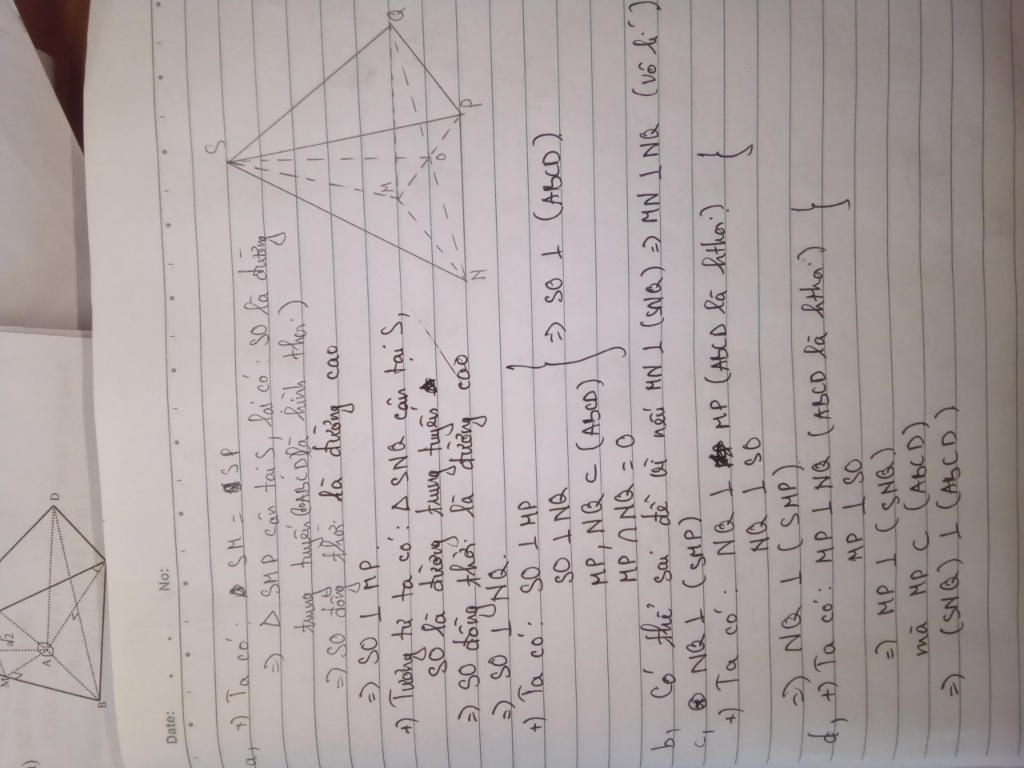 Date:
No:
a, +) Ta có: SM = SP
=) Δ SMP cân tại S, lại có: SO là đường
trung tuyến (ABCD là hình thoi)
=) SO đồng thời là đường cao
=) SO ⊥ MP
+) Tương tự ta có: Δ SNQ cân tại S,
SO là đường trung tuyến
=) SO đồng thời là đường cao
=) SO ⊥ NQ.
+) Ta có: SO ⊥ MP
SO ⊥ NQ
MP, NQ ⊂ (ABCD)
MP ∩ NQ = O
} => SO ⊥ (ABCD)
b, Có thể sai đề vì nói MN ⊥ (SNQ) => MN ⊥ NQ (vô lí)
c, NQ ⊥ (SMP)
+) Ta có: NQ ⊥ MP (ABCD là hthoi) }
NQ ⊥ SO
=) NQ ⊥ (SMP)
d, +) Ta có: MP ⊥ NQ (ABCD là hthoi) }
MP ⊥ SO
=) MP ⊥ (SNQ)
mà MP ⊂ (ABCD)
=) (SNQ) ⊥ (ABCD)
S
Q
M
O
P
N
D
A
B
M